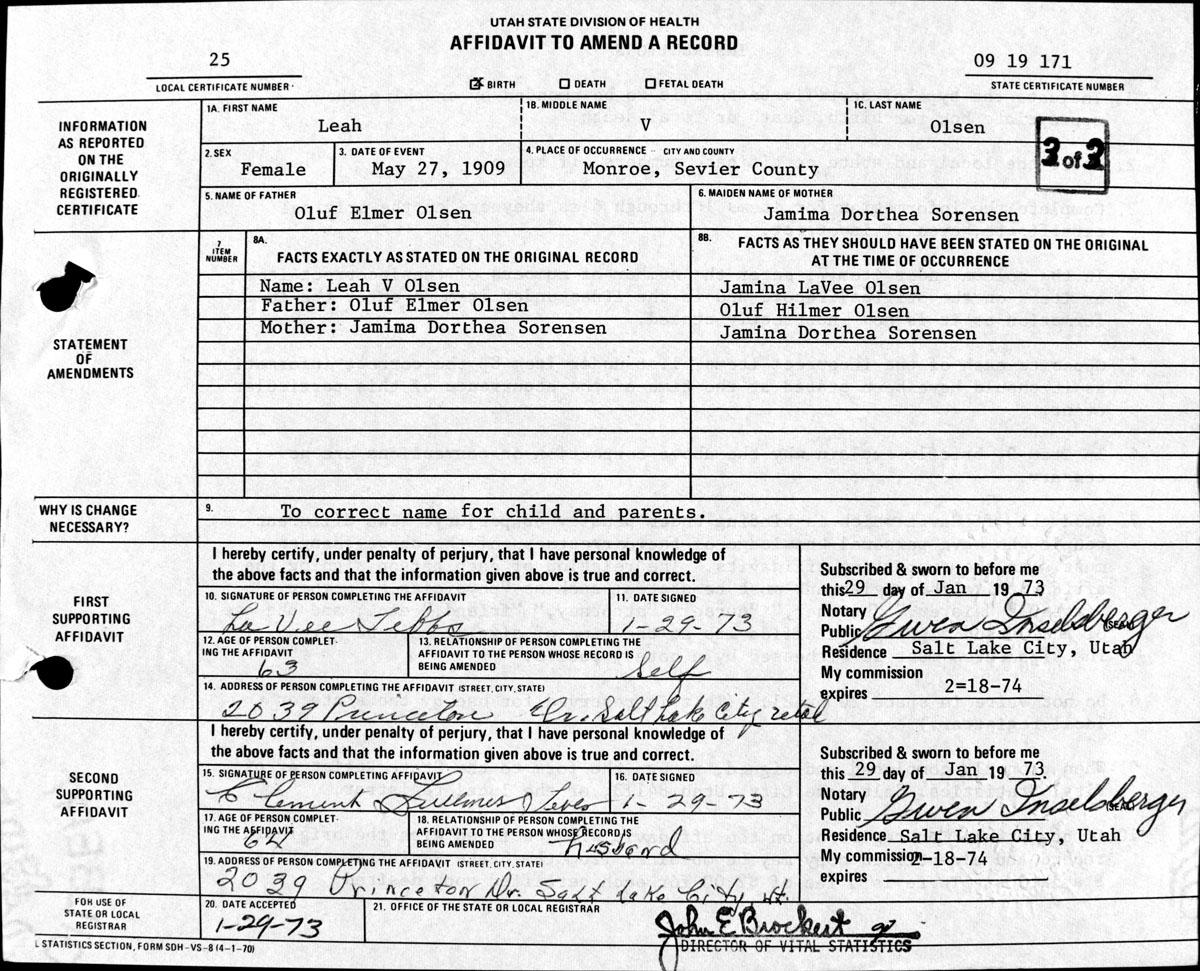 UTAH STATE DIVISION OF HEALTH
AFFIDAVIT TO AMEND A RECORD
25
LOCAL CERTIFICATE NUMBER
BIRTH DEATH FETAL DEATH
09 19 171
STATE CERTIFICATE NUMBER
INFORMATION AS REPORTED ON THE ORIGINALLY REGISTERED CERTIFICATE
1A. FIRST NAME
Leah
1B. MIDDLE NAME
V
1C. LAST NAME
Olsen
2 of 2
2. SEX
Female
3. DATE OF EVENT
May 27, 1909
4. PLACE OF OCCURRENCE - CITY AND COUNTY
Monroe, Sevier County
5. NAME OF FATHER
Oluf Elmer Olsen
6. MAIDEN NAME OF MOTHER
Jamima Dorthea Sorensen
STATEMENT OF AMENDMENTS
7 ITEM NUMBER
8A. FACTS EXACTLY AS STATED ON THE ORIGINAL RECORD
8B. FACTS AS THEY SHOULD HAVE BEEN STATED ON THE ORIGINAL
AT THE TIME OF OCCURRENCE
Name: Leah V Olsen Jamina LaVee Olsen
Father: Oluf Elmer Olsen Oluf Hilmer Olsen
Mother: Jamima Dorthea Sorensen Jamina Dorthea Sorensen
WHY IS CHANGE NECESSARY?
9. To correct name for child and parents.
FIRST SUPPORTING AFFIDAVIT
I hereby certify, under penalty of perjury, that I have personal knowledge of
the above facts and that the information given above is true and correct.
10. SIGNATURE OF PERSON COMPLETING THE AFFIDAVIT
LaVee Tebbs
11. DATE SIGNED
1-29-73
12. AGE OF PERSON COMPLETING THE AFFIDAVIT
63
13. RELATIONSHIP OF PERSON COMPLETING THE
AFFIDAVIT TO THE PERSON WHOSE RECORD IS
BEING AMENDED
Self
14. ADDRESS OF PERSON COMPLETING THE AFFIDAVIT (STREET, CITY, STATE)
2039 Princeton Dr. Salt Lake City Utah
Subscribed & sworn to before me
this 29 day of Jan 19 73
Notary
Public Gwen Inselsberger (SEAL)
Residence Salt Lake City, Utah
My commission
expires 2=18-74
SECOND SUPPORTING AFFIDAVIT
I hereby certify, under penalty of perjury, that I have personal knowledge of
the above facts and that the information given above is true and correct.
15. SIGNATURE OF PERSON COMPLETING AFFIDAVIT
Clement
16. DATE SIGNED
1-29-73
17. AGE OF PERSON COMPLETING THE AFFIDAVIT
64
18. RELATIONSHIP OF PERSON COMPLETING THE
AFFIDAVIT TO THE PERSON WHOSE RECORD IS
BEING AMENDED
Husband
19. ADDRESS OF PERSON COMPLETING THE AFFIDAVIT (STREET, CITY, STATE)
2039 Princeton Dr. Salt Lake City, Ut.
Subscribed & sworn to before me
this 29 day of Jan 19 73.
Notary
Public Gwen Inselsberger (SEAL)
Residence Salt Lake City, Utah
My commission
expires 2-18-74
FOR USE OF STATE OR LOCAL REGISTRAR
20. DATE ACCEPTED
1-29-73
21. OFFICE OF THE STATE OR LOCAL REGISTRAR
John E Brockert
DIRECTOR OF VITAL STATISTICS
L STATISTICS SECTION, FORM SDH-VS-8 (4-1-70)